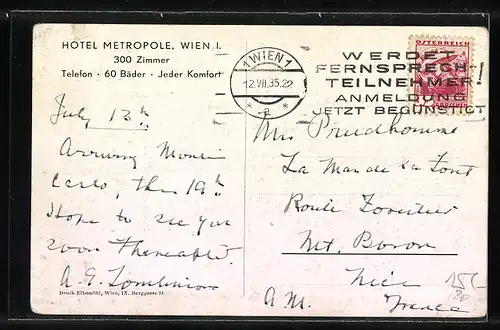 HOTEL METROPOLE, WIEN I.
300 Zimmer
Telefon · 60 Bäder · Jeder Komfort
1 WIEN 1
12.VII.35.22
* a *
WERDET
FERNSPRECH-
TEILNEHMER!
ANMELDUNG
JETZT BEGÜNSTIGT
ÖSTERREICH
July 12th
Arriving Monte
Carlo, the 19th
Hope to see you
soon thereafter.
A. E. Tomlinson
Druck Elbemühl, Wien, IX. Berggasse 31
Prudhomme
La Mas de la Font
Route Forestier
Mt. Boron
Nice
A.M. France